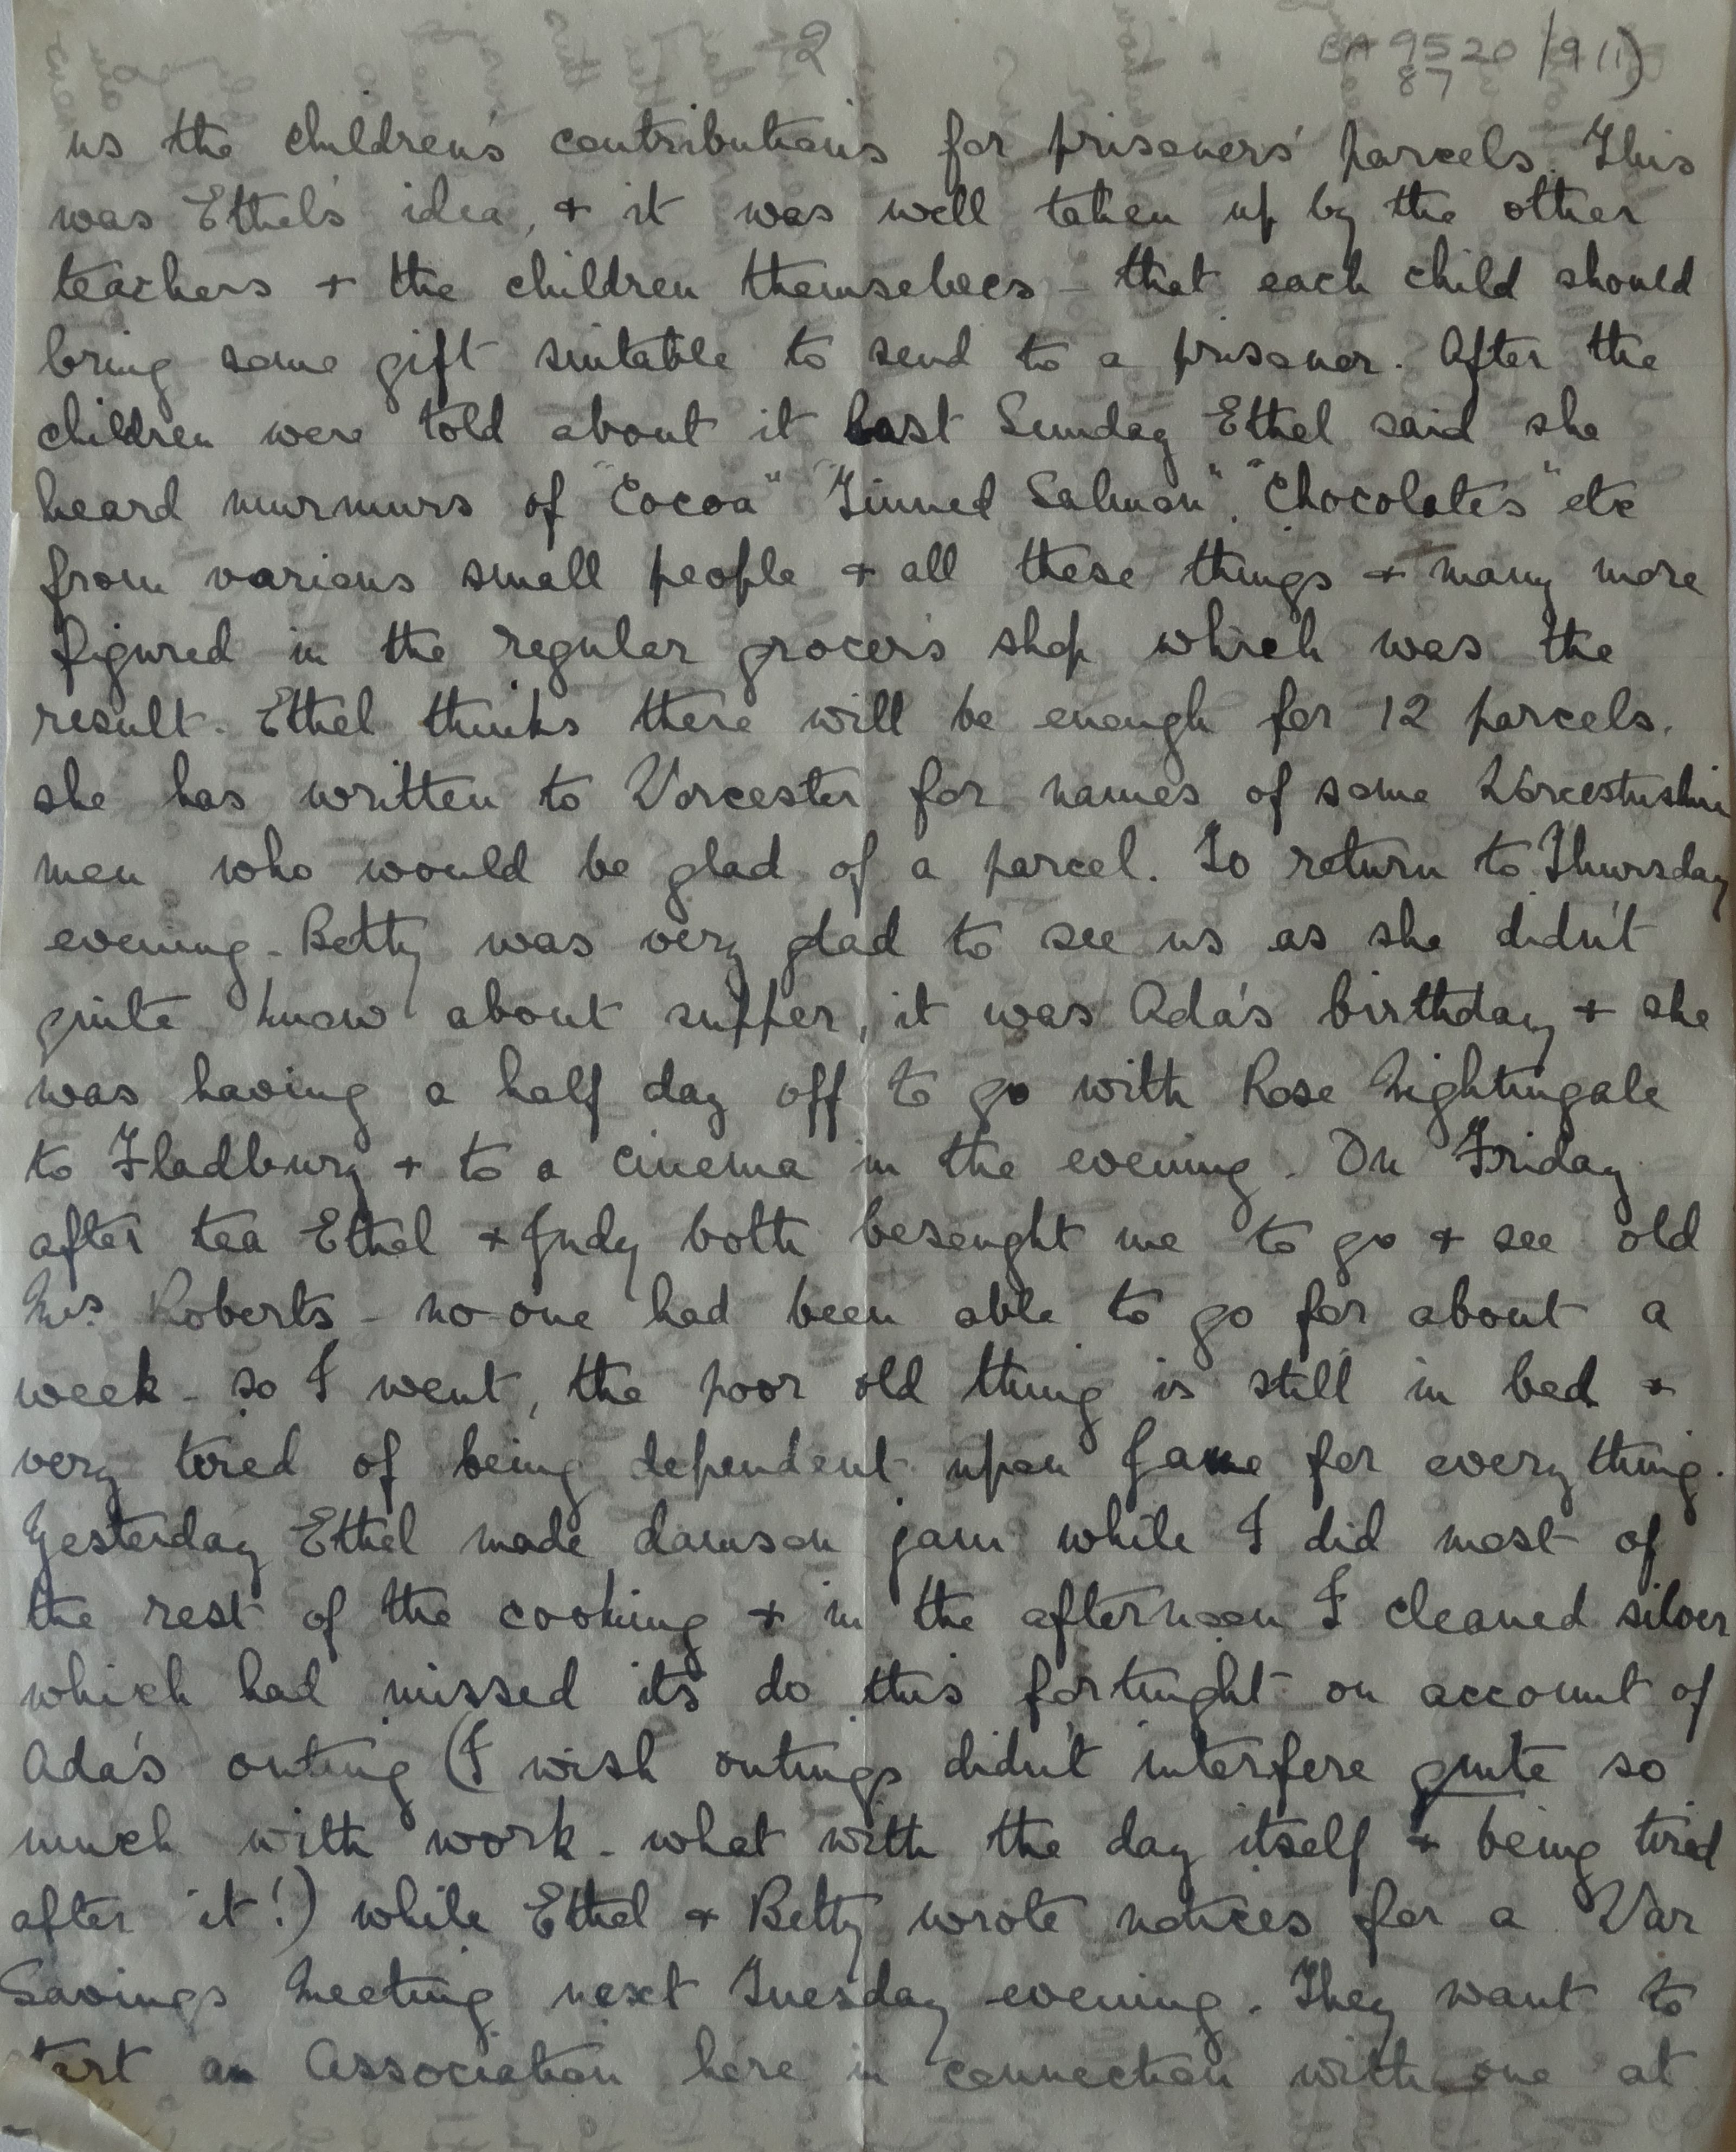 2
BA 9520/9(1)
87
us the children's contributions for prisoners' parcels. This
was Ethel's idea, + it was well taken up by the other
teachers + the children themselves - that each child should
bring some gift suitable to send to a prisoner. After the
children were told about it last Sunday Ethel said she
heard murmurs of "Cocoa" "Tinned Salmon". "Chocolates" etc
from various small people + all these things + many more
figured in the regular grocer's shop which was the
result. Ethel thinks there will be enough for 12 parcels.
she has written to Worcester for names of some Worcestershire
men who would be glad of a parcel. To return to Thursday
evening - Betty was very glad to see us as she didn't
quite know about supper, it was Ada's birthday + she
was having a half day off to go with Rose Nightingale
to Fladbury + to a cinema in the evening. On Friday
after tea Ethel + Judy both besought me to go + see old
Mrs. Roberts - no-one had been able to go for about a
week - so I went, the poor old thing is still in bed +
very tired of being dependent upon Jane for every thing.
Yesterday Ethel made damson jam while I did most of
the rest of the cooking + in the afternoon I cleaned silver
which had missed its do this fortnight on account of
Ada's outing (I wish outings didn't interfere quite so
much with work - what with the day itself + being tired
after it!) while Ethel + Betty wrote notices for a War
Savings Meeting next Tuesday evening. They want to
start an Association here in connection with one at